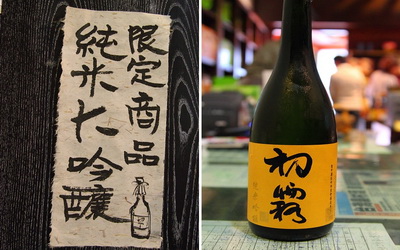 限定商品
純米大吟釀
初霧